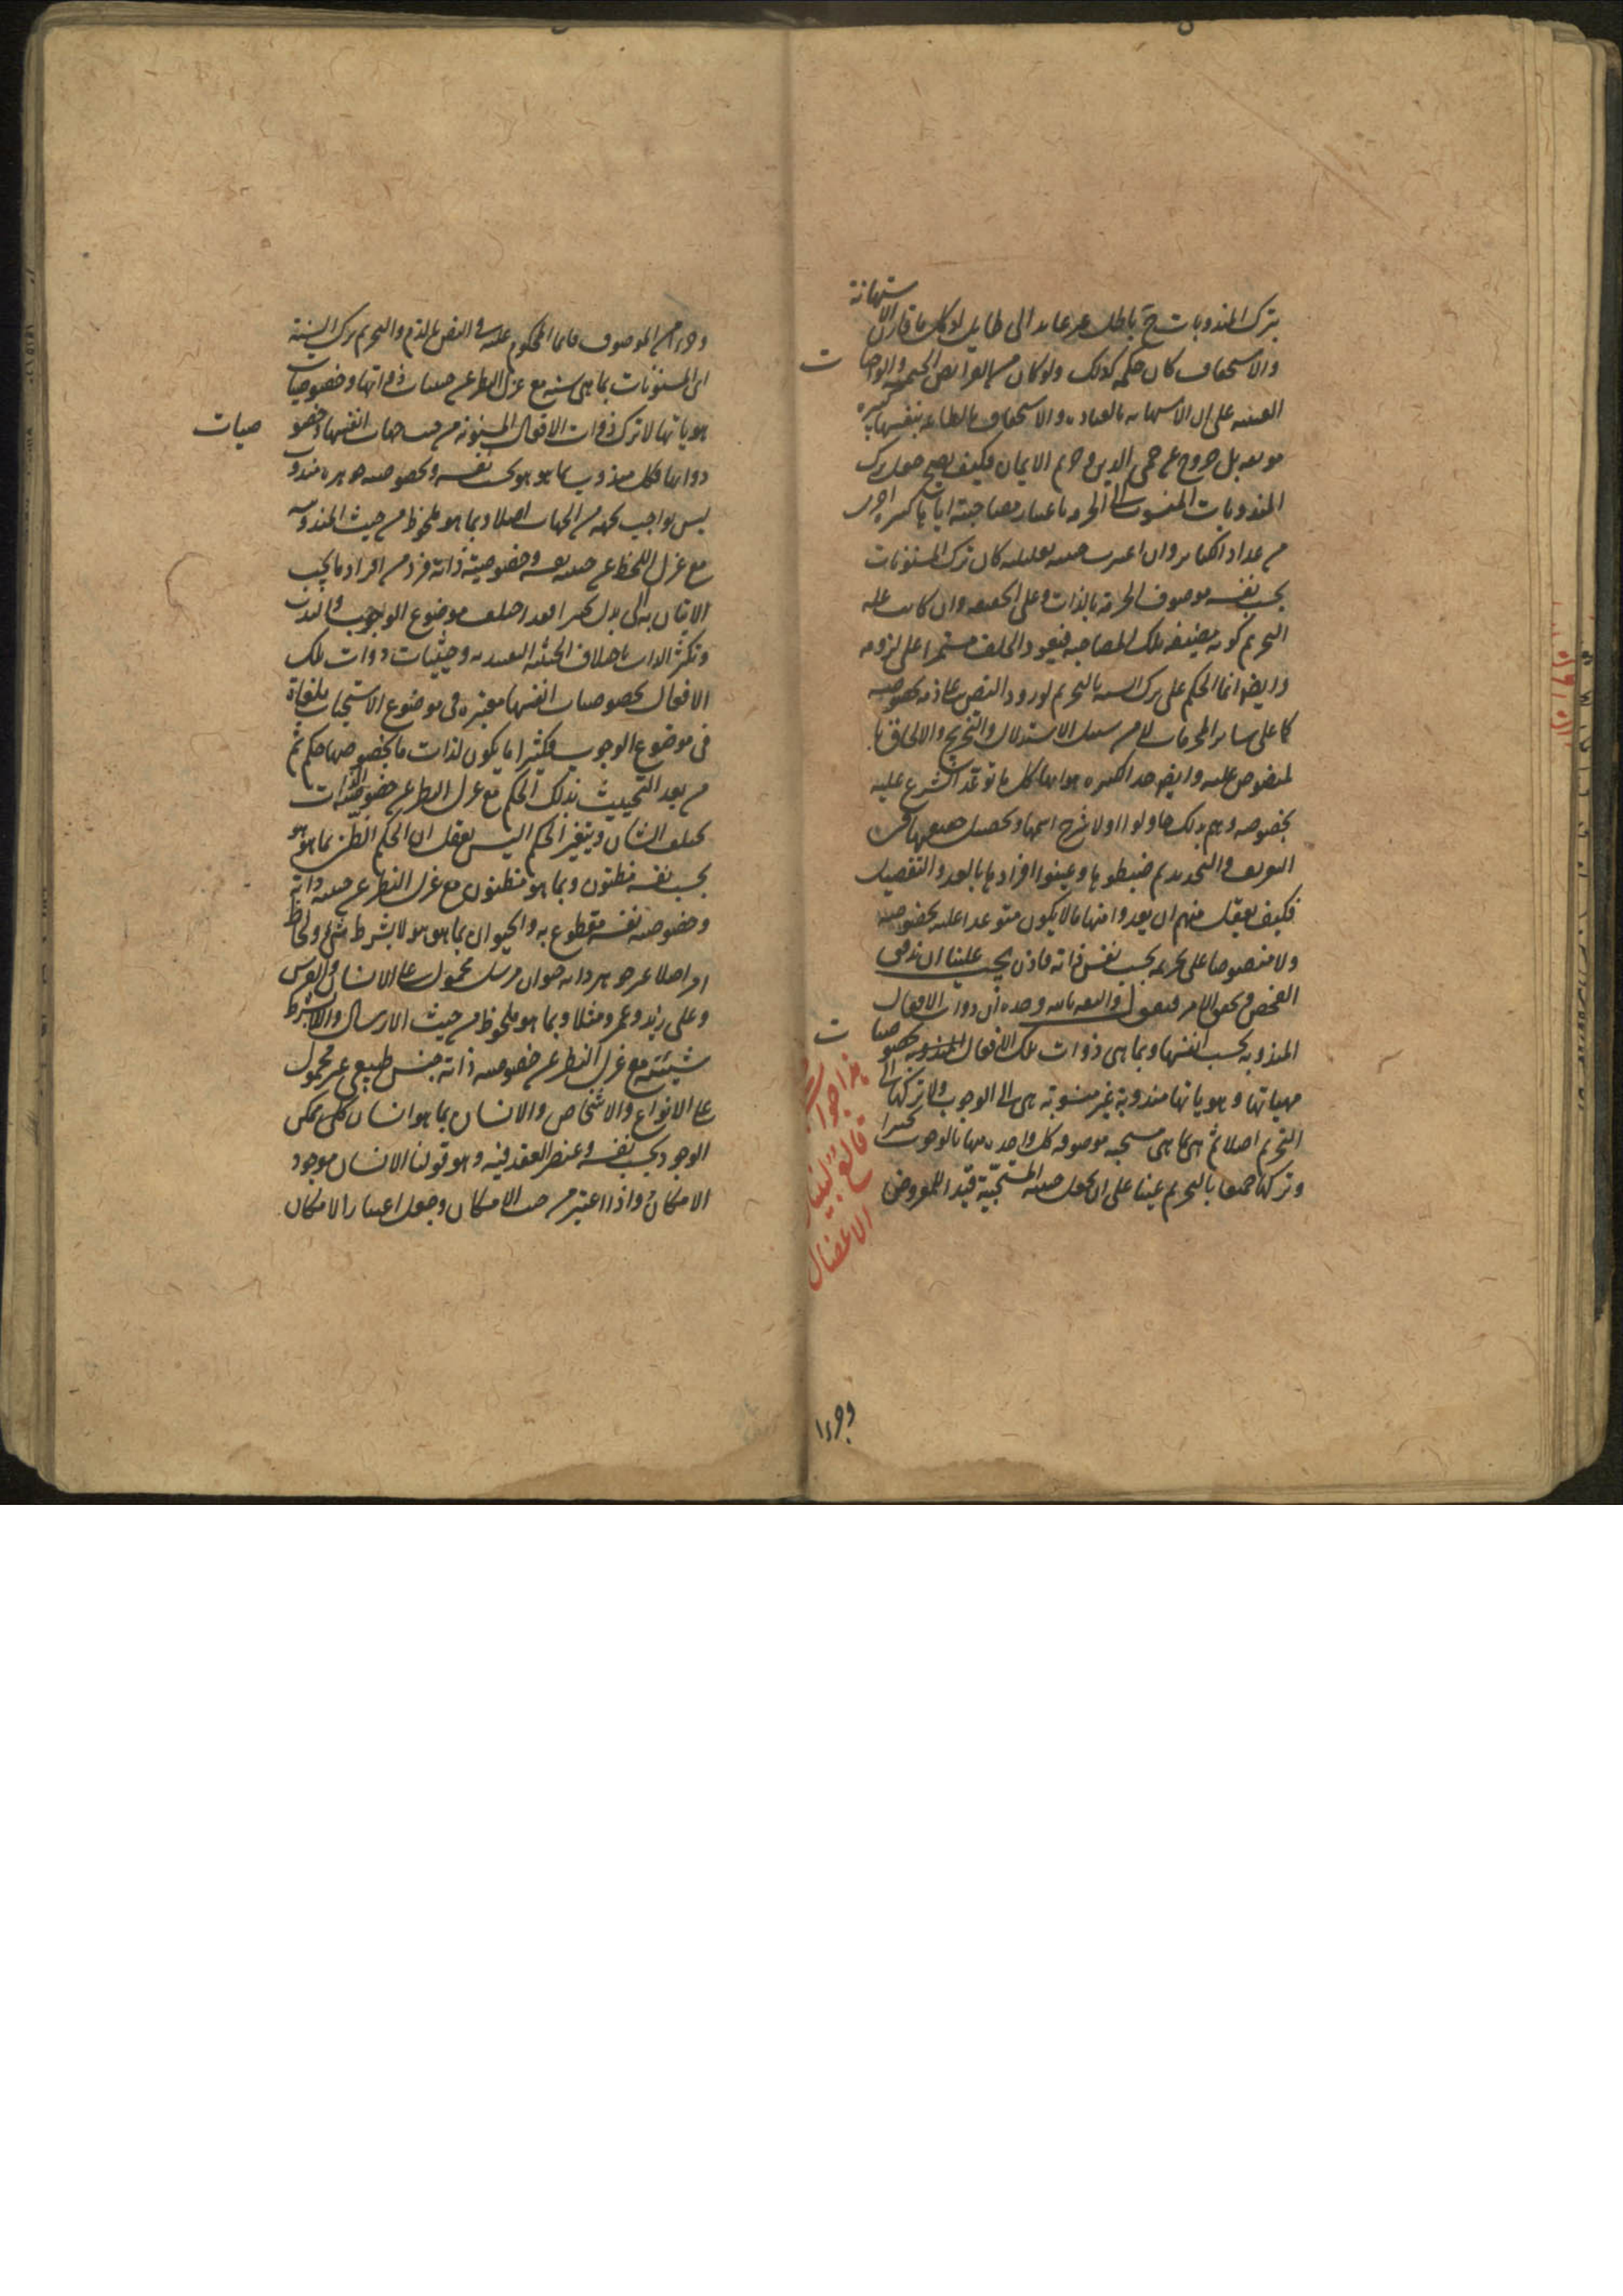 بترك المندوبات ح باطل غير عايد الى طايل اذ كل ما قارن الاستهانة
والاستخفاف كان حكمه كذلك ولو كان من الفرايض الحتمية والواجبات
العينية على ان الاستهانة بالعبادة والاستخفاف بالطاعة بنفسها كبيرة
موبقة بل خروج عن حمى الدين وحرم الايمان فكيف يصح جعل ترك
المندوبات المنسوب الى الحرمة باعتبار مصاحبته اياها كبيرة اخرى
من عداد الكباير وان اعتبرت حيثية تعليلية كان ترك المسنونات
بحسب نفسه موصوف الحرمة بالذات وعلى الحقيقة وان كانت علة
التحريم كونه مضيفة تلك المصاحبة فيعود الخلف مستمرا على لزومه
وايضا انما الحكم على ترك السنة بالتحريم لورود النص على ذمه بخصوصه
كما على ساير المحرمات لا من سبيل الاستدلال والتخريج والالحاق با
لمنصوص عليه وايضا حد الكبيرة هو انها كل ما توعد الشرع عليه
بخصوصه وهم بذلك حاولوا اولا شرح اسمها وتحصيل حقيقتها في
التعريف والتحديد ثم ضبطوها وعينوا افرادها بالعد والتفصيل
فكيف يعقل منهم ان يعدوا منها ما لا يكون متوعدا عليه بخصوصه
ولا منصوصا على تحريمه بحسب نفس ذاته فاذن يجب علينا ان ندقق
الفحص ونحقق الامر فنقول والثقة بالله وحده ان ذوات الافعال
المندوبة بحسب انفسها وبما هى ذوات تلك الافعال المندوبة بخصوصيات
مهياتها وهوياتها مندوبة غير منسوبة هى الى الوجوب ولا تركها الى
التحريم اصلا ثم هى بما هى مستحبة موصوفة كل واحدة منها بالوجوب تخييرا
وتركها جميعا بالتحريم عينا على ان يجعل حيثية المستحبية قيدا للمعروض
هذا جواب
قالع لبنيان
الاعضال
وجزءا
وجزءا من الموصوف فانما المحكوم عليه فى النص بالذم والتحريم ترك السنة
اى المسنونات بما هى سنة مع عزل النظر عن حيثيات ذواتها وخصوصيات
هوياتها لا ترك ذوات الافعال المسنونة من حيث جهات انفسها وخصوصيات
ذواتها فكل مندوب بما هو هو بحسب نفسه وبخصوصية جوهره مندوب
ليس بواجب بجهة من الجهات اصلا وبما هو ملحوظ من حيث المندوبية
مع عزل اللحظ عن حيثية نفسه وخصوصية ذاته فرد من افراد ما يجب
الاتيان به لا على بدل تخييرا فقد اختلف موضوع الوجوب والندب
وتكثر الذات باختلاف الحيثية التقييدية وحيثيات ذوات تلك
الافعال بخصوصيات انفسها معتبرة فى موضوع الاستحباب ملغاة
فى موضوع الوجوب فكثيرا ما يكون لذات ما بخصوصها حكم ثم
من بعد التحييث بذلك الحكم مع عزل النظر عن خصوصية الذات
يختلف الشان ويتغير الحكم اليس يعقل ان الحكم الظنى بما هو هو
بحسب نفسه مظنون وبما هو مظنون مع عزل النظر عن حيثية ذاته
وخصوصية نفسه مقطوع به والحيوان بما هو هو لا بشرط شئ ولحاظ
امر اصلا غير جوهر ذاته حيوان مرسل محمول على الانسان والفرس
وعلى زيد وعمرو مثلا وبما هو ملحوظ من حيث الارسال واللابشرط
شيئية مع عزل النظر عن خصوصية ذاته جنس طبيعى غير محمول
على الانواع والاشخاص والانسان بما هو انسان كلى ممكن
الوجود بحسب نفسه وعنصر العقد فيه وهو قولنا الانسان موجود
الامكان واذا اعتبر من حيث الامكان وجعل اعتبار الامكان